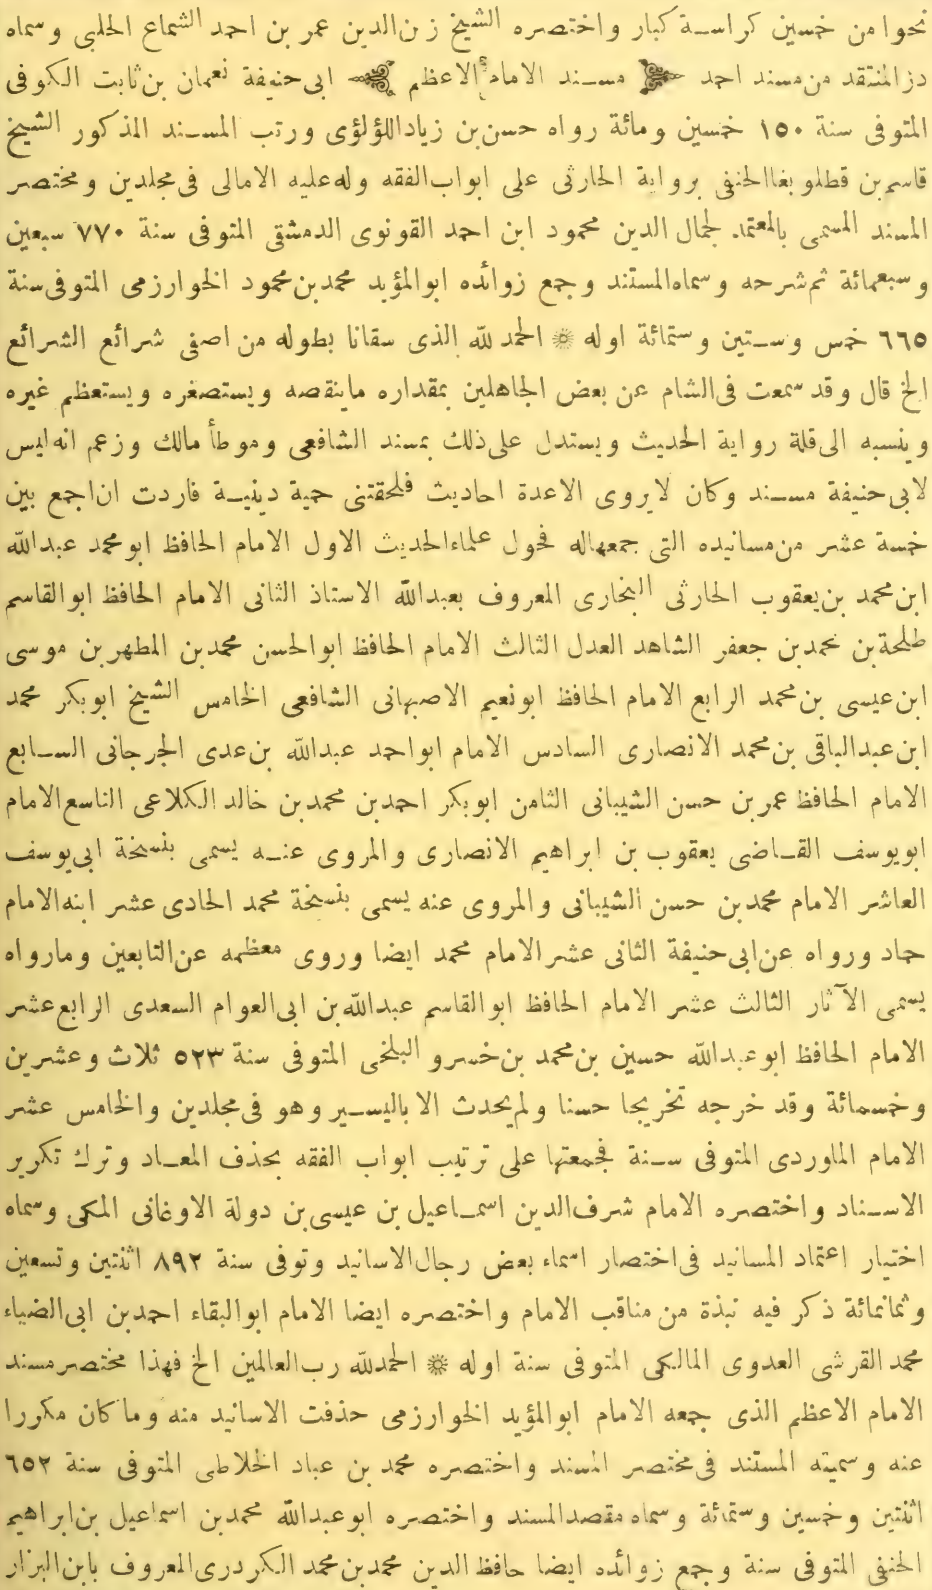 نحوا من خمسين كراسة كبار واختصره الشيخ زين الدين عمر بن احمد الشماع الحلبى وسماه
در المنتقد من مسند احمد مسند الامام الاعظم ابى حنيفة نعمان بن ثابت الكوفى
المتوفى سنة ١٥٠ خمسين ومائة رواه حسن بن زياد اللؤلؤى ورتب المسند المذكور الشيخ
قاسم بن قطلوبغا الحنفى برواية الحارثى على ابواب الفقه وله عليه الامالى فى مجلدين ومختصر
المسند المسمى بالمعتمد لجمال الدين محمود ابن احمد القونوى الدمشقى المتوفى سنة ٧٧٠ سبعين
وسبعمائة ثم شرحه وسماه المستند وجمع زوائده ابو المؤيد محمد بن محمود الخوارزمى المتوفى سنة
٦٦٥ خمس وستين وستمائة اوله ۞ الحمد لله الذى سقانا بطوله من اصفى شرائع الشرائع
الخ قال وقد سمعت فى الشام عن بعض الجاهلين بمقداره ما ينقصه ويستصغره ويستعظم غيره
وينسبه الى قلة رواية الحديث ويستدل على ذلك بمسند الشافعى وموطأ مالك وزعم انه ليس
لابى حنيفة مسند وكان لا يروى الا عدة احاديث فلحقتنى حمية دينية فاردت ان اجمع بين
خمسة عشر من مسانيده التى جمعها له فحول علماء الحديث الاول الامام الحافظ ابو محمد عبد الله
ابن محمد بن يعقوب الحارثى البخارى المعروف بعبد الله الاستاذ الثانى الامام الحافظ ابو القاسم
طلحة بن محمد بن جعفر الشاهد العدل الثالث الامام الحافظ ابو الحسن محمد بن المظهر بن موسى
ابن عيسى بن محمد الرابع الامام الحافظ ابو نعيم الاصبهانى الشافعى الخامس الشيخ ابو بكر محمد
ابن عبد الباقى بن محمد الانصارى السادس الامام ابو احمد عبد الله بن عدى الجرجانى السابع
الامام الحافظ عمر بن حسن الشيبانى الثامن ابو بكر احمد بن محمد بن خالد الكلاعى التاسع الامام
ابو يوسف القاضى يعقوب بن ابراهيم الانصارى والمروى عنه يسمى بنسخة ابى يوسف
العاشر الامام محمد بن حسن الشيبانى والمروى عنه يسمى بنسخة محمد الحادى عشر ابنه الامام
حماد ورواه عن ابى حنيفة الثانى عشر الامام محمد ايضا وروى معظمه عن التابعين وما رواه
يسمى الآثار الثالث عشر الامام الحافظ ابو القاسم عبد الله بن ابى العوام السعدى الرابع عشر
الامام الحافظ ابو عبد الله حسين بن محمد بن خسرو البلخى المتوفى سنة ٥٢٣ ثلاث وعشرين
وخمسمائة وقد خرجه تخريجا حسنا ولم يحدث الا باليسير وهو فى مجلدين والخامس عشر
الامام الماوردى المتوفى سنة فجمعتها على ترتيب ابواب الفقه بحذف المعاد وترك تكرير
الاسناد واختصره الامام شرف الدين اسماعيل بن عيسى بن دولة الاوغانى المكى وسماه
اختيار اعتماد المسانيد فى اختصار اسماء بعض رجال الاسانيد وتوفى سنة ٨٩٢ اثنتين وتسعين
وثمانمائة ذكر فيه نبذة من مناقب الامام واختصره ايضا الامام ابو البقاء احمد بن ابى الضياء
محمد القرشى العدوى المالكى المتوفى سنة اوله ۞ الحمد لله رب العالمين الخ فهذا مختصر مسند
الامام الاعظم الذى جمعه الامام ابو المؤيد الخوارزمى حذفت الاسانيد منه وما كان مكررا
عنه وسميته المستند فى مختصر المسند واختصره محمد بن عباد الخلاطى المتوفى سنة ٦٥٢
اثنتين وخمسين وستمائة وسماه مقصد المسند واختصره ابو عبد الله محمد بن اسماعيل بن ابراهيم
الحنفى المتوفى سنة وجمع زوائده ايضا حافظ الدين محمد بن محمد الكردرى المعروف بابن البزار